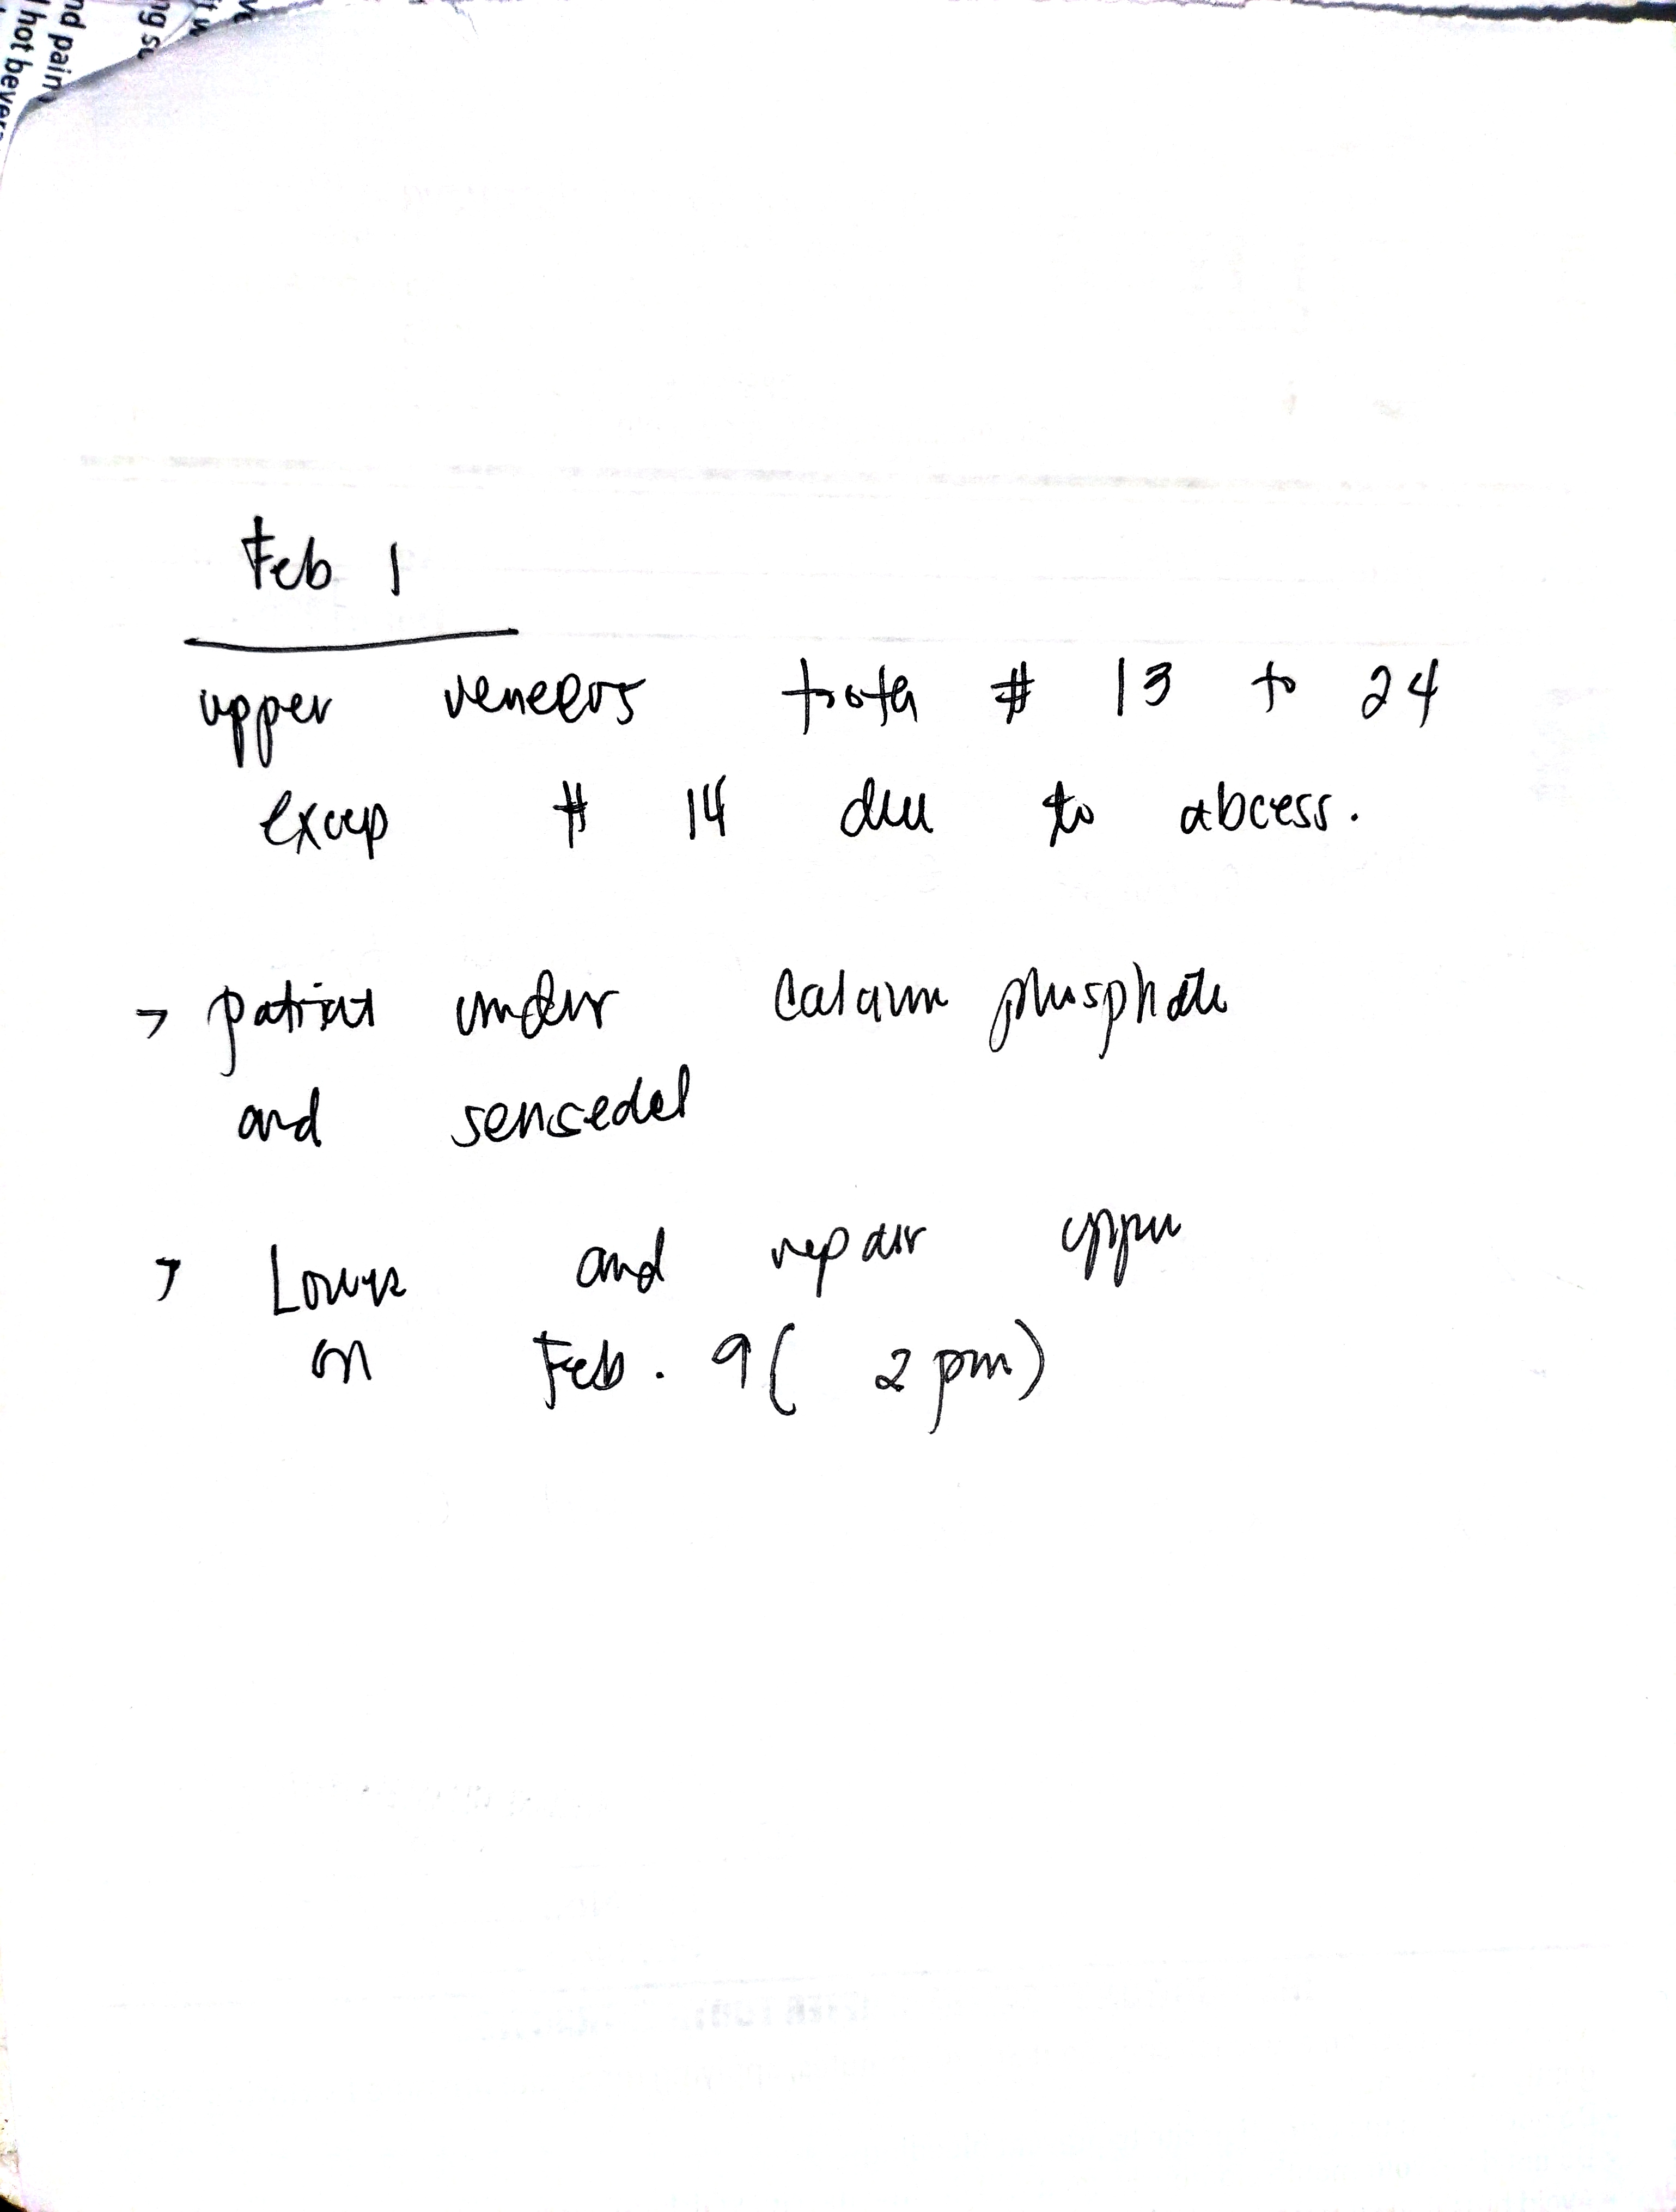 nd pain
l not bever
ng se
Feb 1
upper veneers tooth # 13 to 24
excep # 14 due to abcess.
> patient under calcium phosphate
and sensedel
> Lower and repair upper
on Feb. 9 ( 2 pm )